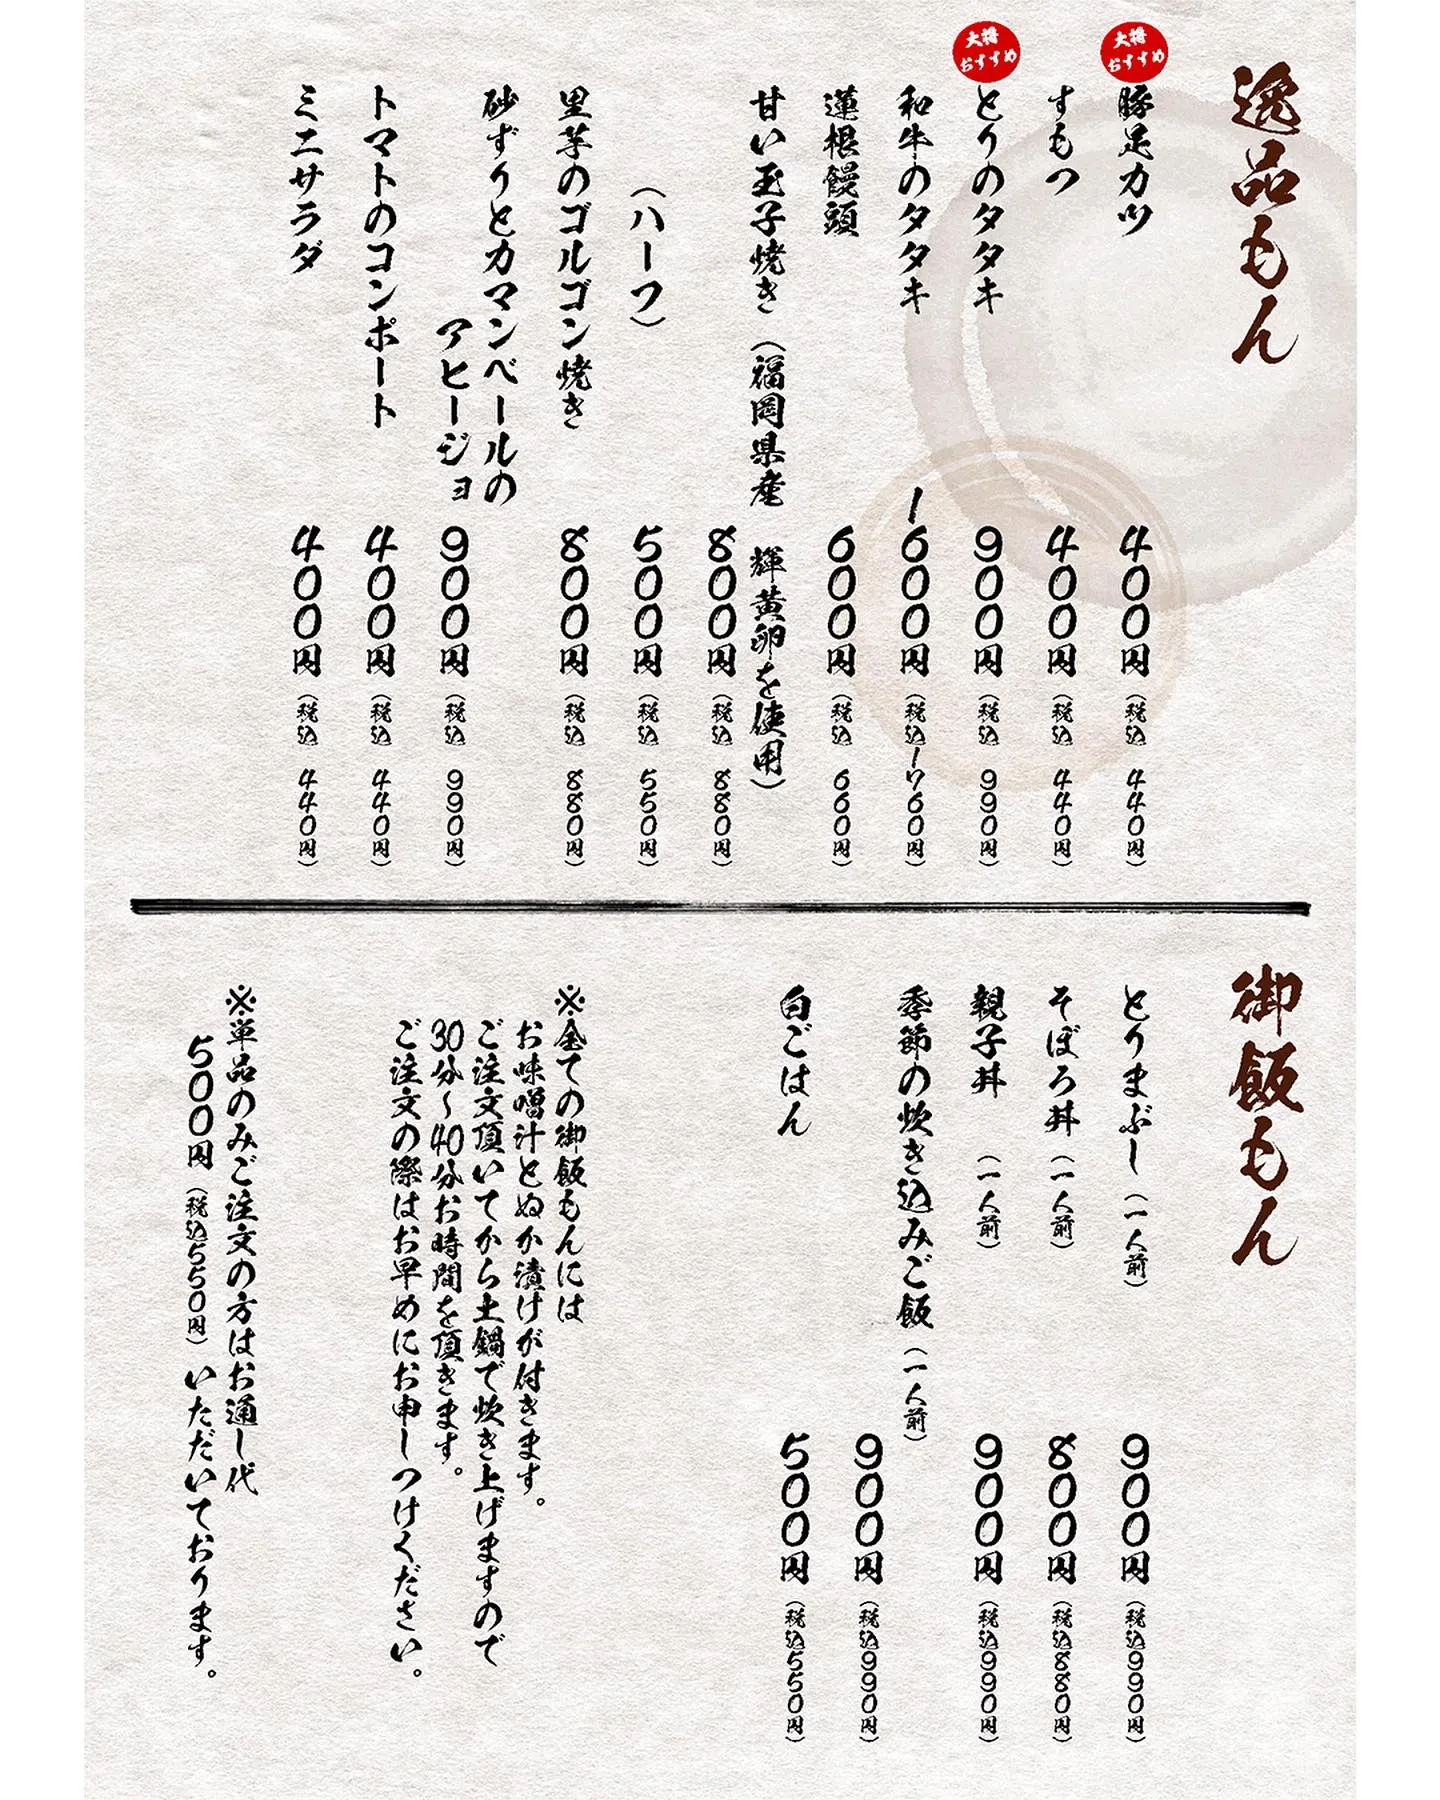 逸品もん
大将
おすすめ
豚足カツ 400円（税込 440円）
すもつ 400円（税込 440円）
大将
おすすめ
とりのタタキ 900円（税込 990円）
和牛のタタキ 1600円（税込 1760円）
蓮根饅頭 600円（税込 660円）
甘い玉子焼き（福岡県産 輝黄卵を使用）
800円（税込 880円）
（ハーフ） 500円（税込 550円）
里芋のゴルゴン焼き 800円（税込 880円）
砂ずりとカマンベールの
アヒージョ 900円（税込 990円）
トマトのコンポート 400円（税込 440円）
ミニサラダ 400円（税込 440円）
御飯もん
とりまぶし（一人前） 900円（税込990円）
そぼろ丼（一人前） 800円（税込880円）
親子丼（一人前） 900円（税込990円）
季節の炊き込みご飯（一人前）
900円（税込990円）
白ごはん 500円（税込550円）
※全ての御飯もんには
お味噌汁とぬか漬けが付きます。
ご注文頂いてから土鍋で炊き上げますので
30分～40分お時間を頂きます。
ご注文の際はお早めにお申しつけください。
※単品のみご注文の方はお通し代
500円（税込550円）いただいております。